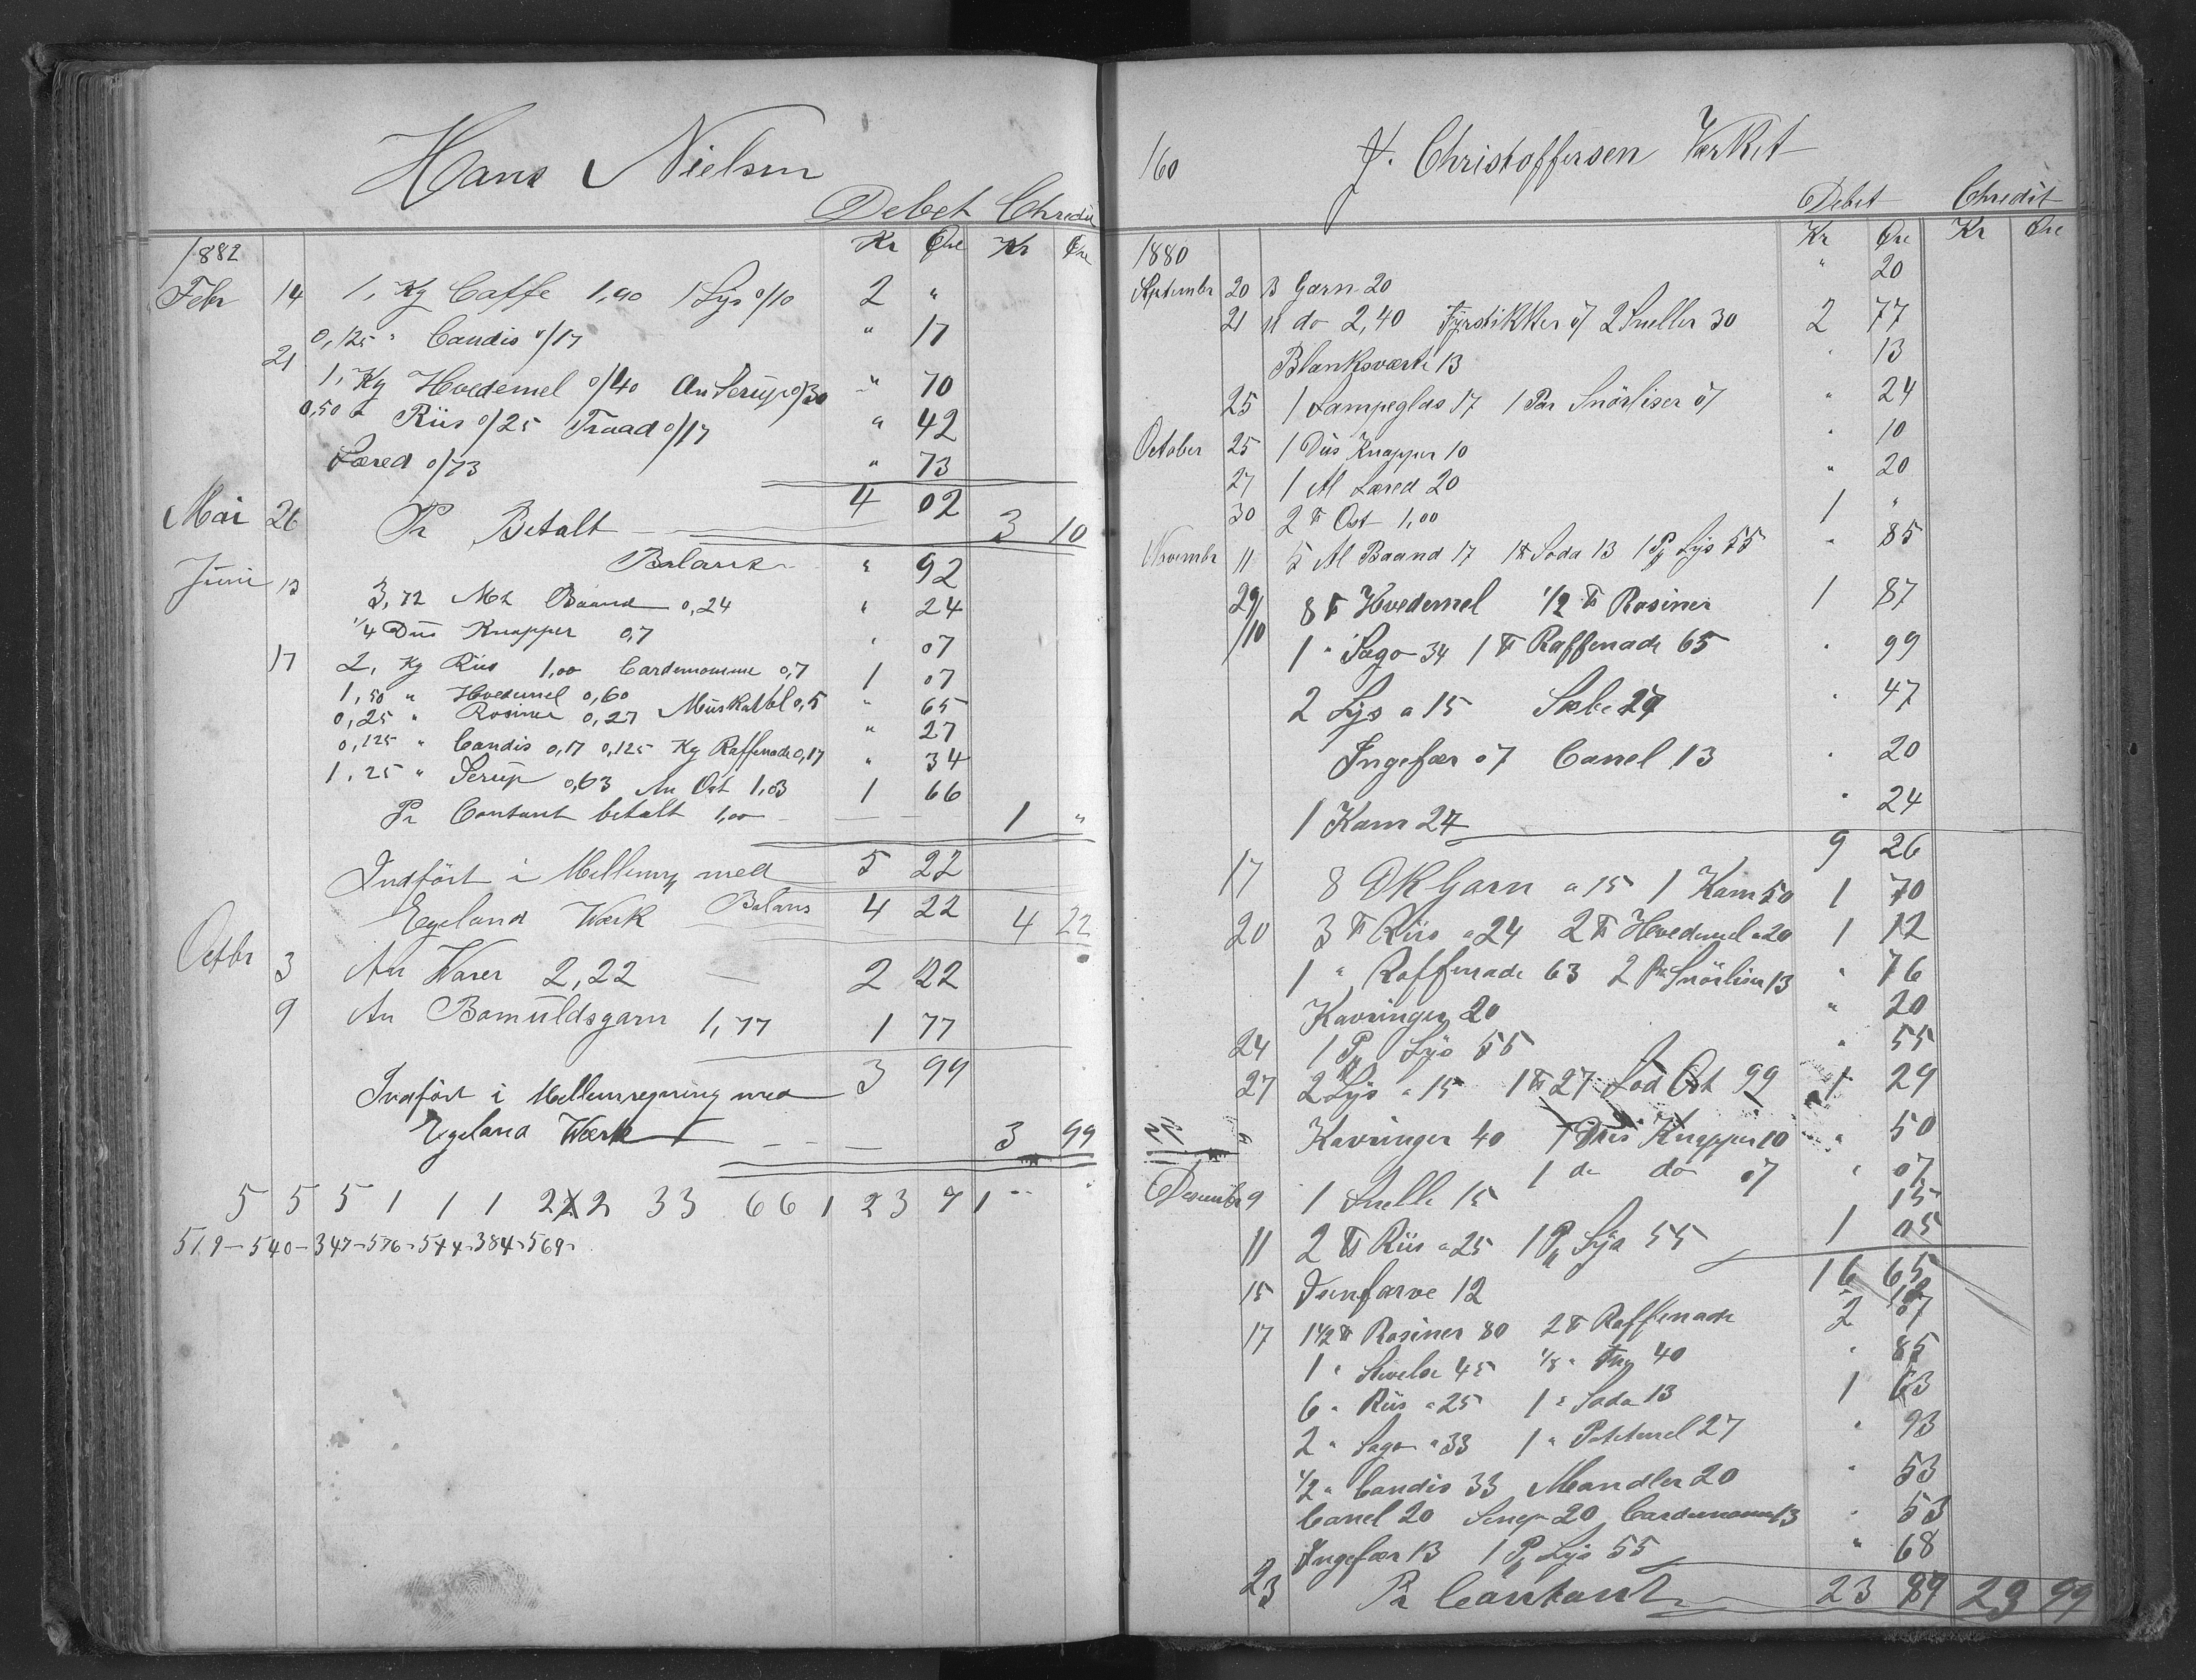 Hans Nielsen
Debet Chredit
1882 Kr Øre Kr Øre
Febr 14 1, Kg Caffe 1,90 1 Lys 0/10 2 "
0,125 " Candis 0/17 " 17
21 1, Kg Hvedemel 0/40 An Serup 0/30 " 70
0,50 " Riis 0/25 Traad 0/17 " 42
Læred 0/73 " 73
4 02
Mai 26 Pr Betalt 3 10
Balans " 92
Juni 13 3,72 Mt Baand 0,24 " 24
1/4 Dus Knapper 0,7 " 07
17 2, Kg Riis 1,00 Cardemomme 0,7 1 07
1,50 " Hvedemel 0,60 Muskatbl 0,5 " 65
0,25 " Rosiner 0,27 " 27
0,125 " Candis 0,17 0,125 Kg Raffenade 0,17 " 34
1,25 " Serup 0,63 An Ost 1,03 1 66
Pr Contant betalt 1,00 1 "
5 22
Indført i Mellemrg med
Egeland Værk Balans 4 22 4 22
Octbr 3 An Varer 2,22 2 22
9 An Bomuldsgarn 1,77 1 77
3 99
Indført i Mellemregning med
Egeland Værk 3 99
5 5 5 1 1 1 2 2 2 33 66 1 23 71
519-540-347-576-544-384-569-
160 J. Christoffersen Værket
Debet Chredit
1880 Kr Øre Kr Øre
September 20 3 Garn 20 " 20
21 11 do 2,40 Fyrstikker 07 2 Sneller 30 2 77
Blanksværte 13 " 13
25 1 Lampeglas 17 1 Par Snörliser 07 " 24
October 25 1 Dus Knapper 10 " 10
27 1 Al Læred 20 " 20
30 2 ℔ Ost 1,00 1 "
Novembr 11 5 Al Baand 17 1 ℔ Soda 13 1 Pk Lys 55 " 85
29/10 8 ℔ Hvedemel 1/2 ℔ Rosiner 1 87
1 " Sago 34 1 ℔ Raffenade 65 " 99
2 Lys a 15 Sæbe 27 " 47
Ingefær 07 Canel 13 " 20
1 Kam 24 " 24
9 26
17 8 Garn a 15 1 Kam 50 1 70
20 3 ℔ Riis a 24 2 ℔ Hvedemel a 20 1 12
1 " Raffenade 63 2 Par Snörliser 13 " 76
Kavringer 20 " 20
24 1 Pk Lys 55 " 55
27 2 Lys a 15 1 ℔ 27 Lod Ost 99 1 29
" Kavringer 40 1 Dus Knapper 10 " 50
1 do do 07 " 07
Desember 9 1 Snelle 15 15
11 2 ℔ Riis a 25 1 Pk Lys 55 1 05
16 65
15 Bunfarve 12 12
17 1 1/2 ℔ Rosiner 80 2 ℔ Raffenade 2 07
1 " Stivelse 45 40 " 85
6 " Riis a 25 1 " Soda 13 1 63
2 " Sago a 33 1 " Potetmel 27 " 93
1/2 " Candis 33 Mandler 20 " 53
Canel 20 Senep 20 Cardemomme 13 " 53
Ingefær 13 1 Pk Lys 55 " 68
23 Pr Contant 23 89 23 99